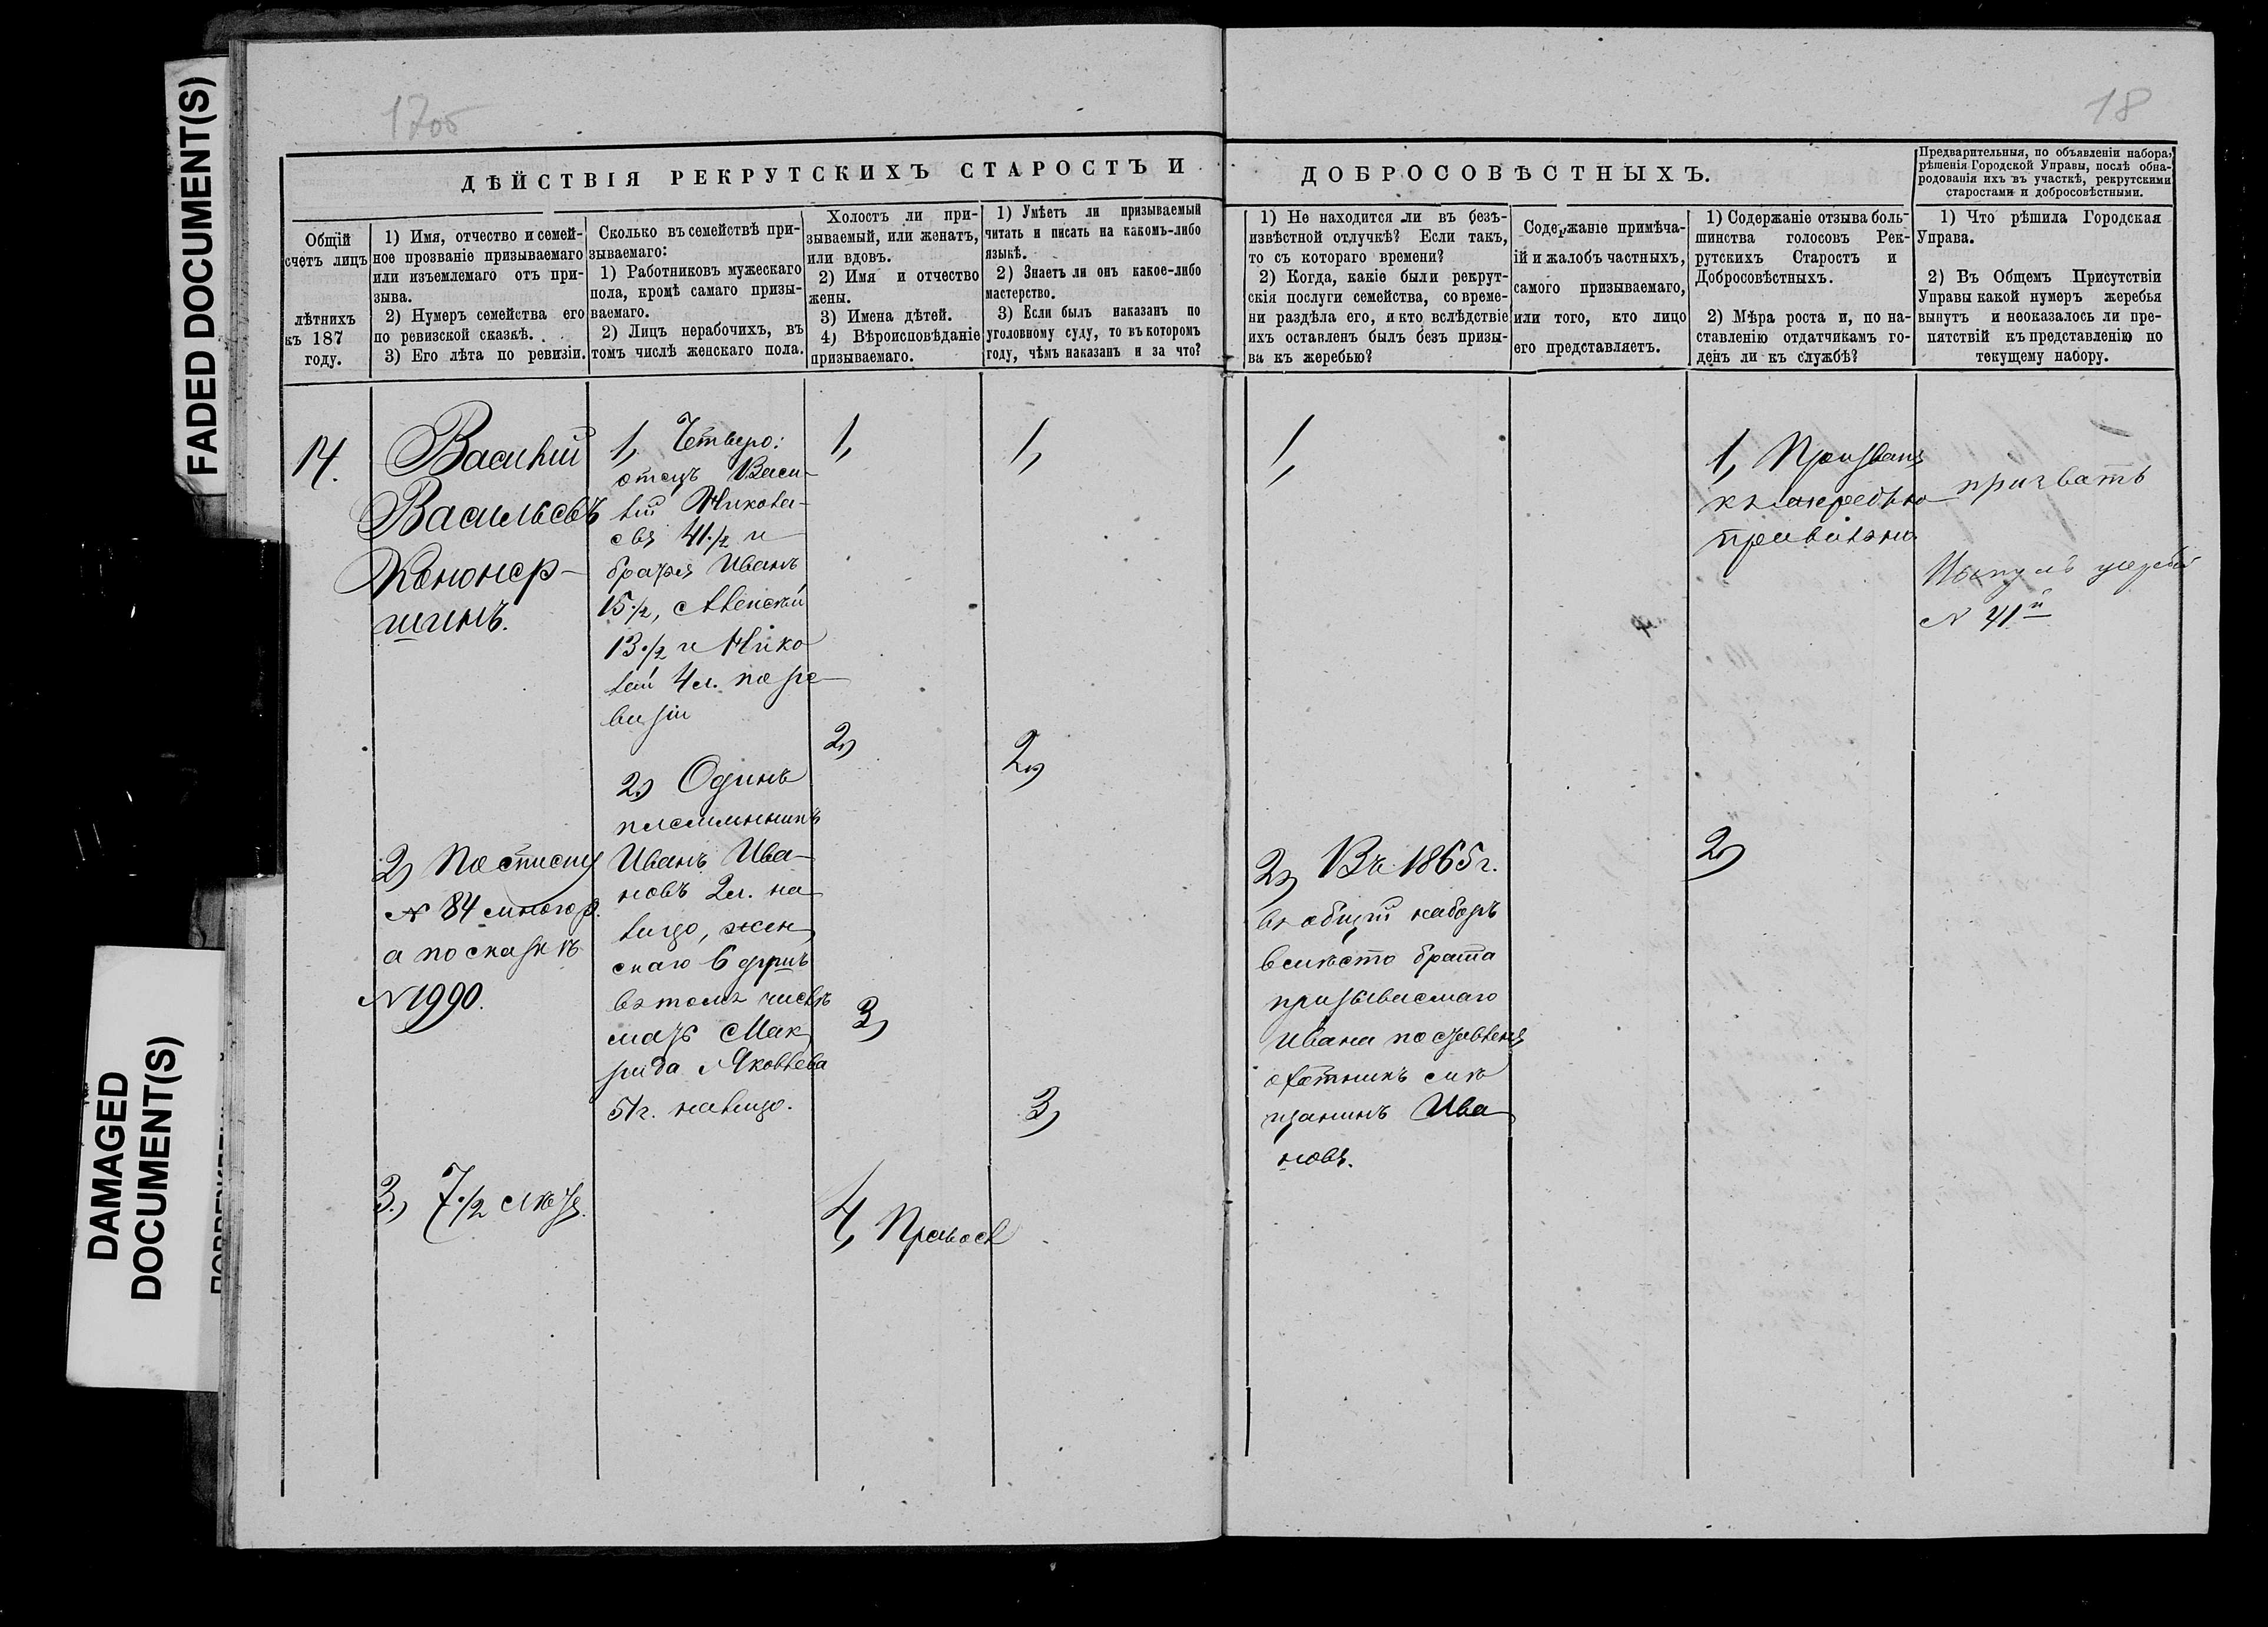 FADED DOCUMENT(S)
DAMAGED
DOCUMENT(S)
17об
18
ДѢЙСТВІЯ РЕКРУТСКИХЪ СТАРОСТЪ И
ДОБРОСОВѢСТНЫХЪ.
Предварительныя, по объявленіи набора,
рѣшенія Городской Управы, послѣ обна-
родованія ихъ въ участкѣ, рекрутскими
старостами и добросовѣстными.
Общій
счетъ лицъ
лѣтнихъ
къ 187
году.
1) Имя, отчество и семей-
ное прозваніе призываемаго
или изъемлемаго отъ при-
зыва.
2) Нумеръ семейства его
по ревизской сказкѣ.
3) Его лѣта по ревизіи.
Сколько въ семействѣ при-
зываемаго:
1) Работниковъ мужескаго
пола, кромѣ самаго призы-
ваемаго.
2) Лицъ нерабочихъ, въ
томъ числѣ женскаго пола.
Холостъ ли при-
зываемый, или женатъ,
или вдовъ.
2) Имя и отчество
жены.
3) Имена дѣтей.
4) Вѣроисповѣданіе
призываемаго.
1) Умѣетъ ли призываемый
читать и писать на какомъ-либо
языкѣ.
2) Знаетъ ли онъ какое-либо
мастерство.
3) Если былъ наказанъ по
уголовному суду, то въ которомъ
году, чѣмъ наказанъ и за что?
1) Не находится ли въ безъ-
извѣстной отлучкѣ? Если такъ,
то съ котораго времени?
2) Когда, какіе были рекрут-
скія послуги семейства, со време-
ни раздѣла его, и кто вслѣдствіе
ихъ оставленъ былъ безъ призы-
ва къ жеребью?
Содержаніе примѣча-
ій и жалобъ частныхъ,
самого призываемаго,
или того, кто лицо
его представляетъ.
1) Содержаніе отзыва боль-
шинства голосовъ Рек-
рутскихъ Старостъ и
Добросовѣстныхъ.
2) Мѣра роста и, по на-
ставленію отдатчикамъ го-
денъ ли къ службѣ?
1) Что рѣшила Городская
Управа.
2) Въ Общемъ Присутствіи
Управы какой нумеръ жеребья
вынутъ и неоказалось ли пре-
пятствій къ представленію по
текущему набору.
14.
Василій
Васильевъ
Кононер-
шинъ.
2) По списку
№ 84 многор.
а по сказкѣ
№ 1990.
3, 7 1/2 лѣтъ.
1, Четверо:
отецъ Васи-
лій Никола-
евъ 41 1/2 и
братья Иванъ
15 1/2, Алексѣй
13 1/2 и Нико
лай 4 л. по ре
визіи
2) Одинъ
племянникъ
Иванъ Ива-
новъ 2 л. на
лицо, жен
скаго 6 душъ
въ томъ числѣ
мать Мак
рида Яковлева
51 г. налицо.
1,
2)
3)
4, Правосл
1,
2)
3)
1,
2) Въ 1865 г.
въ общій наборъ
вмѣсто брата
призываемаго
Ивана поставленъ
охотникъ мѣ
щанинъ Ива
новъ.
1, Призванъ
къ жеребью
правильно
2)
призвать
Вынулъ жребій
№ 41й